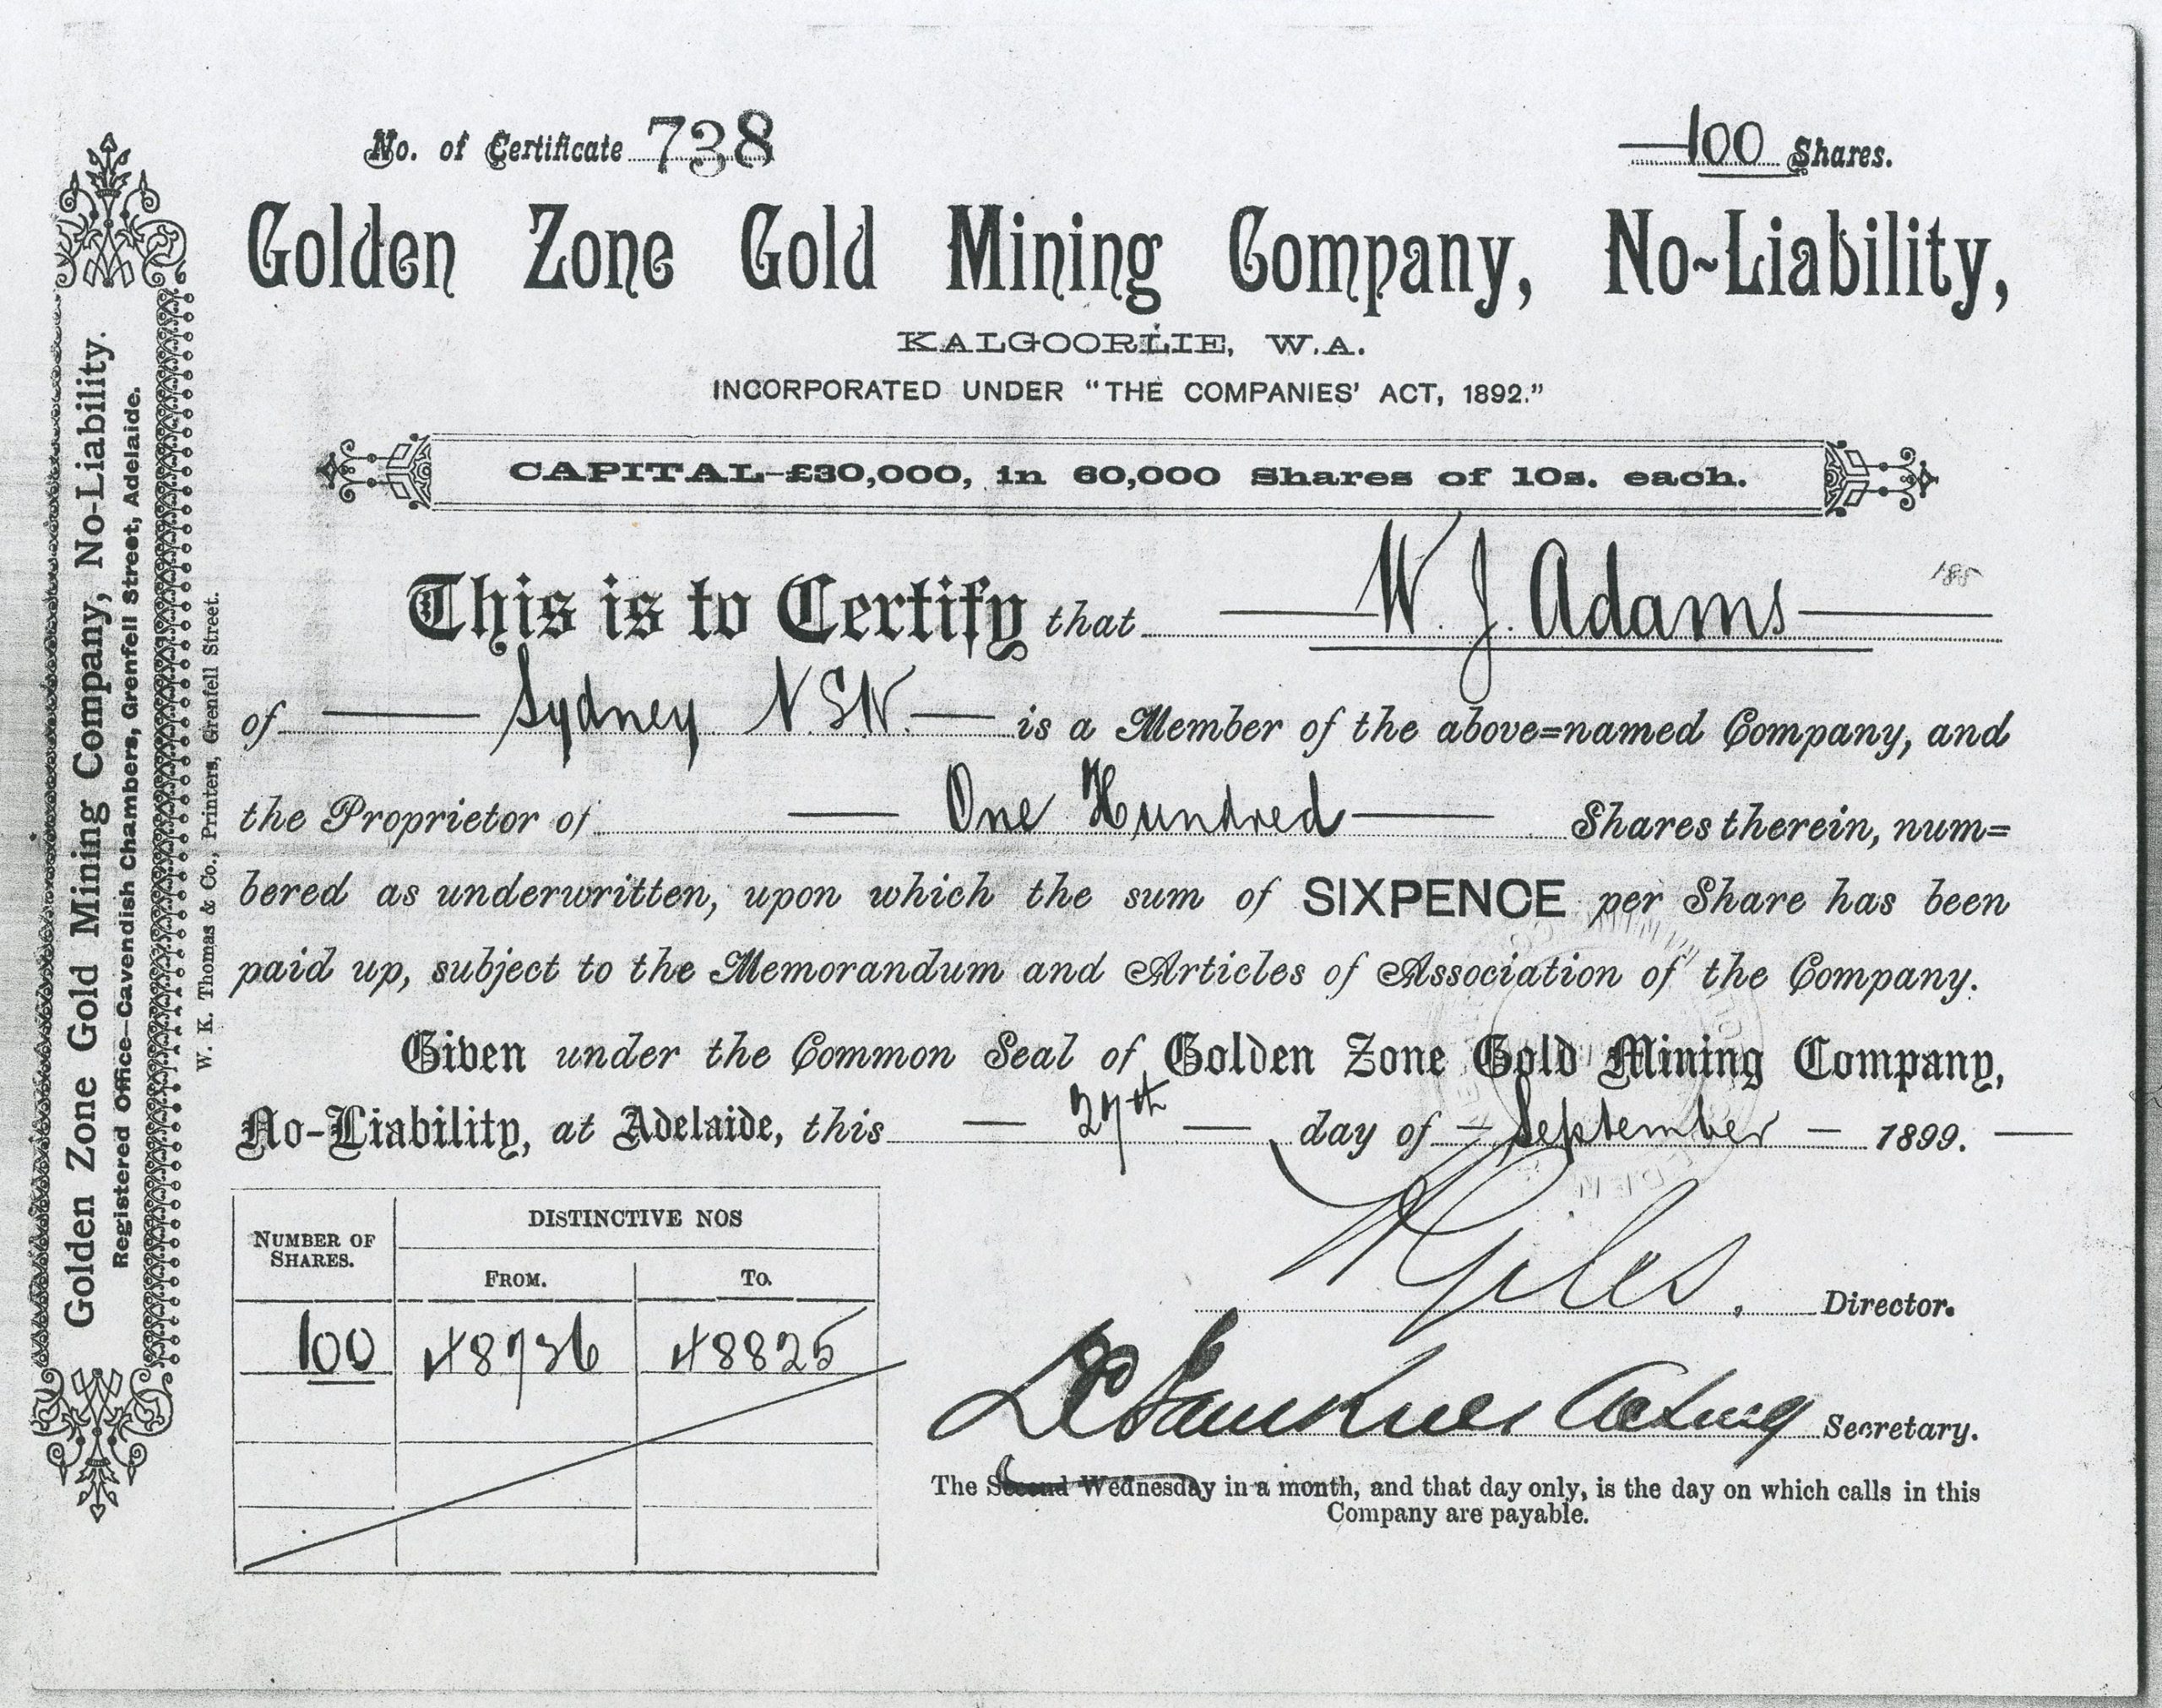 No. of Certificate 738
100 Shares.
Golden Zone Gold Mining Company, No-Liability,
KALGOORLIE, W.A.
INCORPORATED UNDER "THE COMPANIES' ACT, 1892."
CAPITAL—£30,000, in 60,000 Shares of 10s. each.
This is to Certify that W. J. Adams
of Sydney N.S.W. is a Member of the above=named Company, and
the Proprietor of One Hundred Shares therein, num=
bered as underwritten, upon which the sum of SIXPENCE per Share has been
paid up, subject to the Memorandum and Articles of Association of the Company.
Given under the Common Seal of Golden Zone Gold Mining Company,
No-Liability, at Adelaide, this 27th day of September 1899.
NUMBER OF SHARES.
DISTINCTIVE NOS
FROM. TO.
100 48726 48825
Giles. Director.
Acting Secretary.
The Second Wednesday in a month, and that day only, is the day on which calls in this
Company are payable.
Golden Zone Gold Mining Company, No-Liability.
Registered Office—Cavendish Chambers, Grenfell Street, Adelaide.
W. K. Thomas & Co., Printers, Grenfell Street.